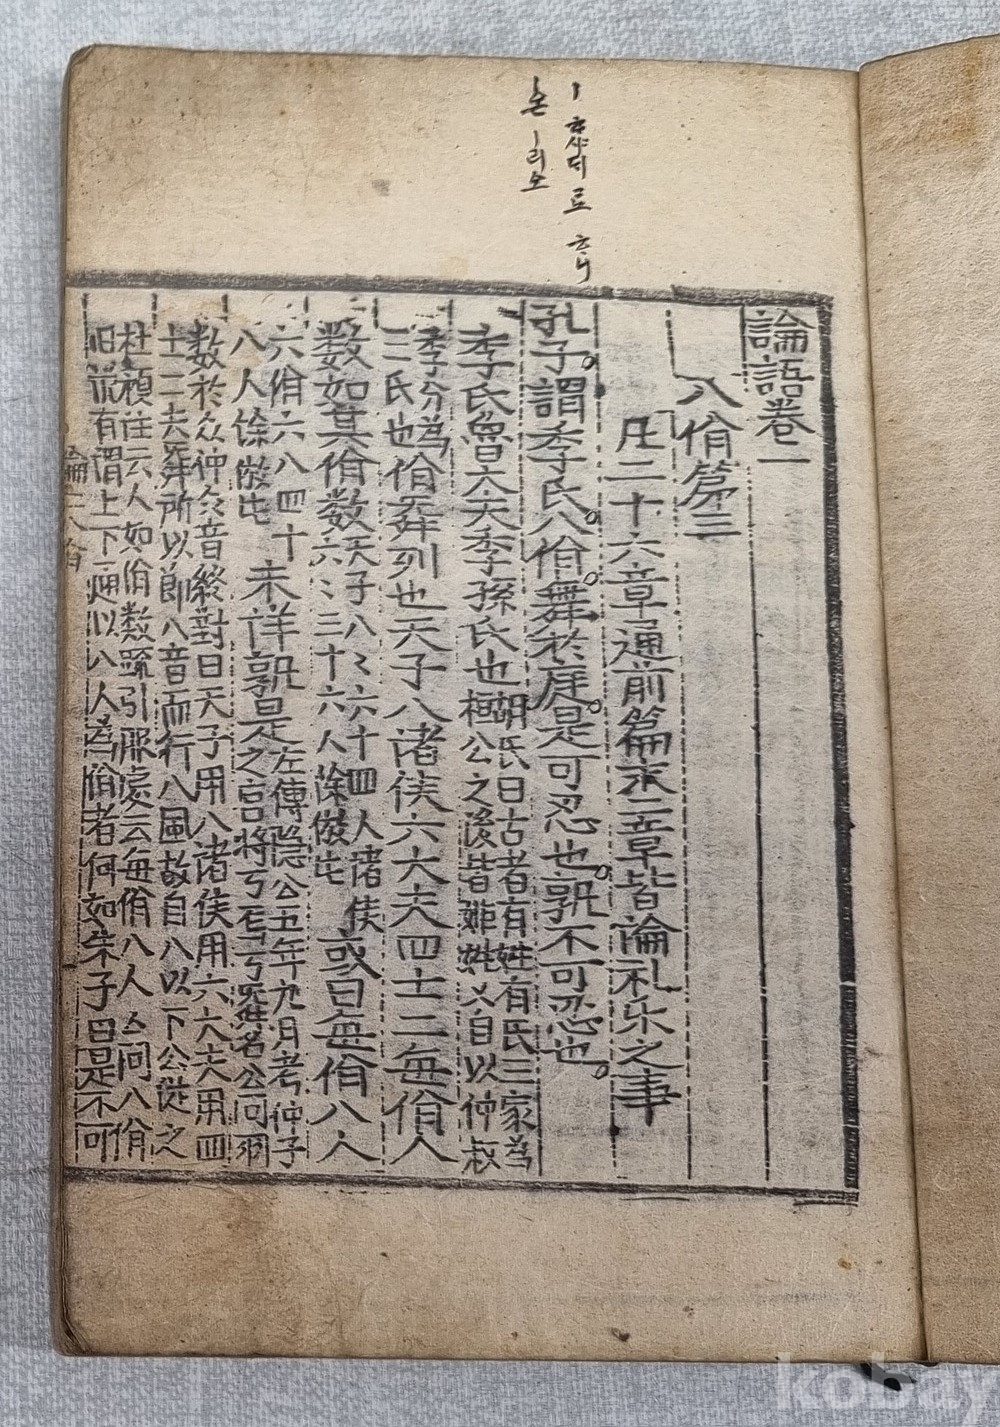 ㅣ리오
論語卷一
八佾第三
凡二十六章通前篇末二章皆論礼乐之事
孔子謂季氏八佾舞於庭是可忍也孰不可忍也
季氏魯大夫季孫氏也
胡氏曰古者有姓有氏三家為
桓公之後皆姬姓又自以仲叔
季分為
三氏也
佾舞列也天子八諸侯六大夫四士二每佾人
数如其佾数
天子八〻六十四人諸侯
六〻三十六人餘倣此
或曰每佾八人
六佾六八四十
八人餘倣此
未詳孰是
左傳隐公五年九月考仲子
之宮將万公问羽
数於众仲众音終對曰天子用八諸侯用六大夫用四
士二夫舞所以節八音而行八風故自八以下公從之
杜預注云人如佾数疏引服虔云每佾八人问八佾
旧說有謂上下通以八人為佾者何如朱子曰是不可
kobay